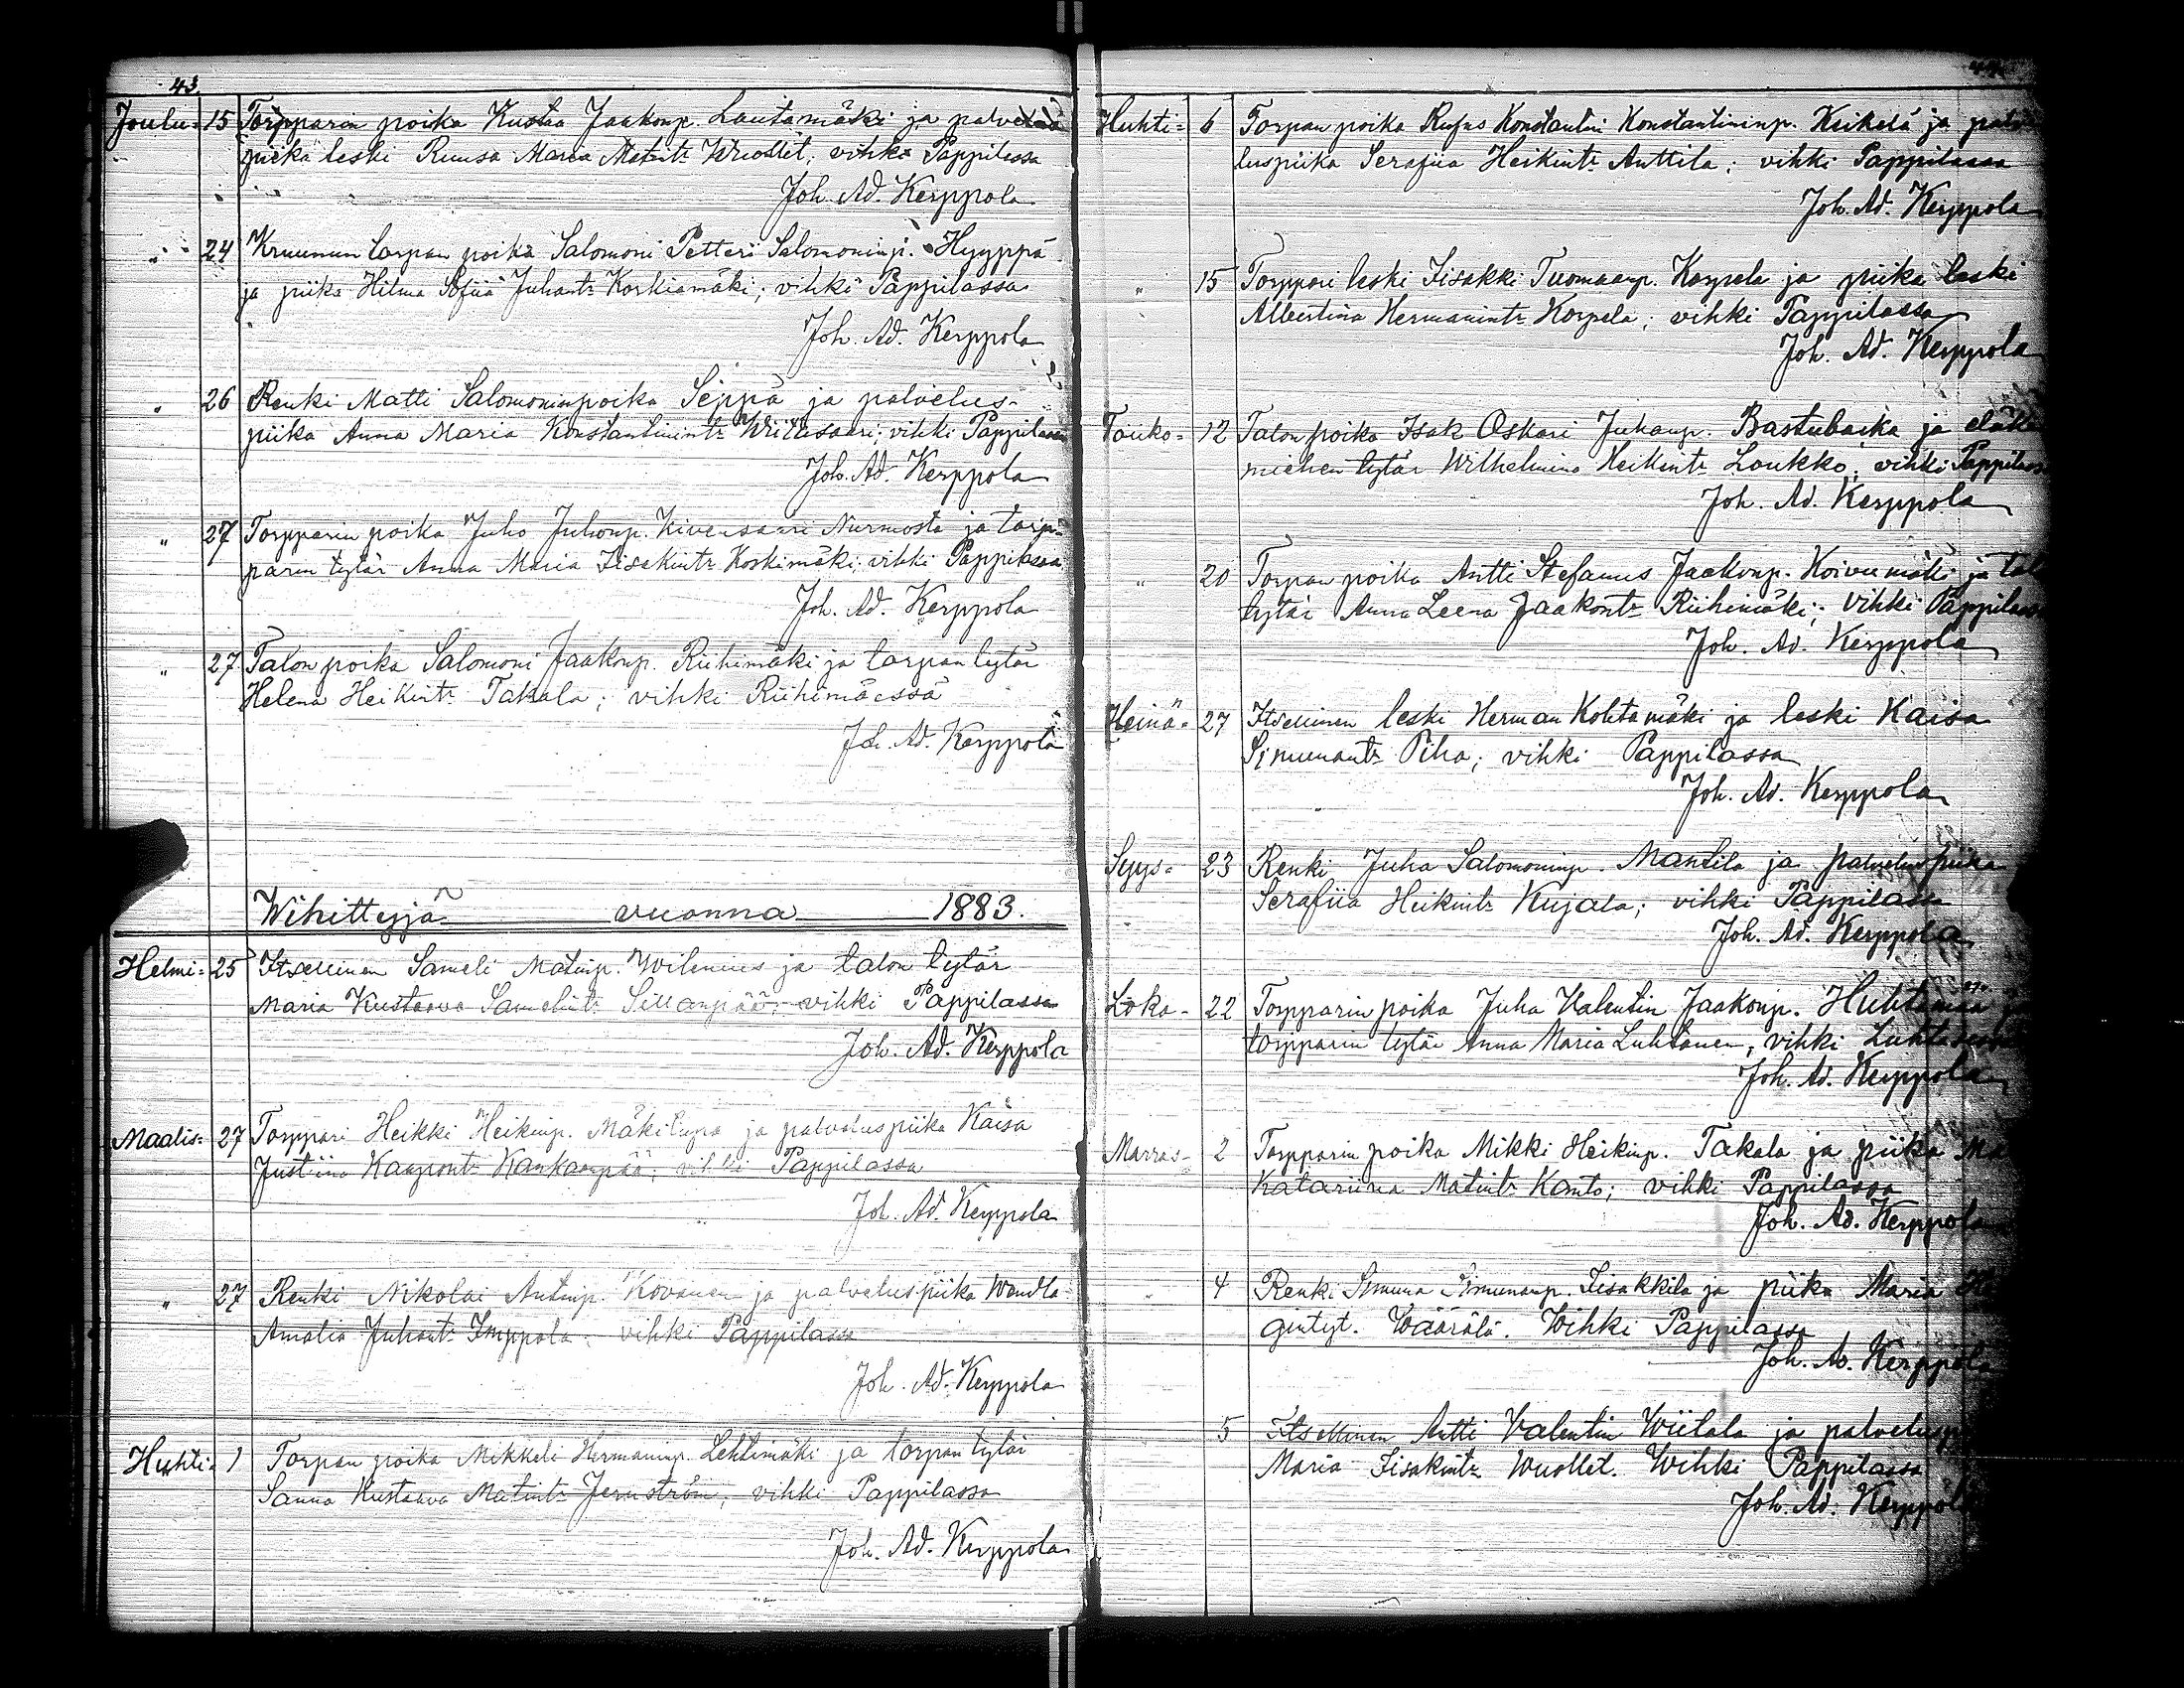 43.
Joulu= 15 Torpparin poika Kustaa Jaakonp. Lautamäki ja palvelus
piika leski Ruusa Maria Matintr Wuollet; vihki Pappilassa
Joh. Ad. Kerppola
" 24 Kruunun torpan poika Salomoni Petteri Salomoninp. Hyyppä
ja piika Hilma Sofiia Juhantr Korkiamäki; vihki Pappilassa
Joh. Ad. Kerppola
" 26 Renki Matti Salomoninpoika Seppä ja palvelus-
piika Anna Maria Konstantinintr Wiitasaari; vihki Pappilassa
Joh. Ad. Kerppola
" 27 Torpparin poika Juho Juhonp. Kivensaari Nurmosta ja torp-
parin tytär Anna Maria Iisakintr Koskimäki; vihki Pappilassa
Joh. Ad. Kerppola
" 27 Talon poika Salomoni Jaakonp. Riihimäki ja torpan tytär
Helena Heikintr Takala; vihki Riihimäessä
Joh. Ad. Kerppola
Wihittyjä vuonna 1883.
Helmi= 25 Itsellinen Sameli Matinp. Wilenius ja talon tytär
Maria Kustaava Samelintr Sillanpää; vihki Pappilassa
Joh. Ad. Kerppola
Maalis= 27 Torppari Heikki Heikinp. Mäkitupa ja palveluspiika Kaisa
Justiina Kaapontr Kankaanpää; vihki Pappilassa
Joh. Ad. Kerppola
" 27 Renki Nikolai Antinp. Kovanen ja palveluspiika Wendla
Amalia Juhantr Imppola; vihki Pappilassa
Joh. Ad. Kerppola
Huhti= 1 Torpan poika Mikkeli Hermaninp. Lehtimäki ja torpan tytär
Sanna Kustaava Matintr Jernström; vihki Pappilassa
Joh. Ad. Kerppola
44
Huhti= 6 Torpan poika Rufus Konstantin Konstantininp. Keikelä ja palve
luspiika Serafiia Heikintr Anttila; vihki Pappilassa
Joh. Ad. Kerppola
" 15 Torppari leski Iisakki Tuomaanp. Korpela ja piika leski
Albertina Hermanintr Korpela; vihki Pappilassa
Joh. Ad. Kerppola
Touko= 12 Talon poika Isak Oskari Juhanp. Bastubacka ja eläke
miehen tytär Wilhelmina Heikintr Loukko; vihki Pappilassa
Joh. Ad. Kerppola
" 20 Torpan poika Antti Stefanus Jaakonp. Koivumäki ja talon
tytär Anna Leena Jaakontr Riihimäki; vihki Pappilassa
Joh. Ad. Kerppola
Heinä= 27 Itsellinen leski Herman Kohtamäki ja leski Kaisa
Simunantr Piha; vihki Pappilassa
Joh. Ad. Kerppola
Syys= 23 Renki Juha Salomoninp. Mantila ja palveluspiika
Serafiia Heikintr Kujala; vihki Pappilassa
Joh. Ad. Kerppola
Loka- 22 Torpparin poika Juha Valentin Jaakonp. Huhtamäki
torpparin tytär Anna Maria Luhtanen, vihki
Joh. Ad. Kerppola
Marras- 2 Torpparin poika Mikki Heikinp. Takala ja piika
Katariina Matintr Kanto; vihki Pappilassa
Joh. Ad. Kerppola
" 4 Renki Simuna Simunanp. Iisakkila ja piika Maria
gintyt. Wäärälä. Wihki Pappilassa
Joh. Ad. Kerppola
5 Itsellinen Antti Valentin Wiitala ja palvelusp
Maria Iisakintr Wuollet. Wihki Pappilassa
Joh. Ad. Kerppola